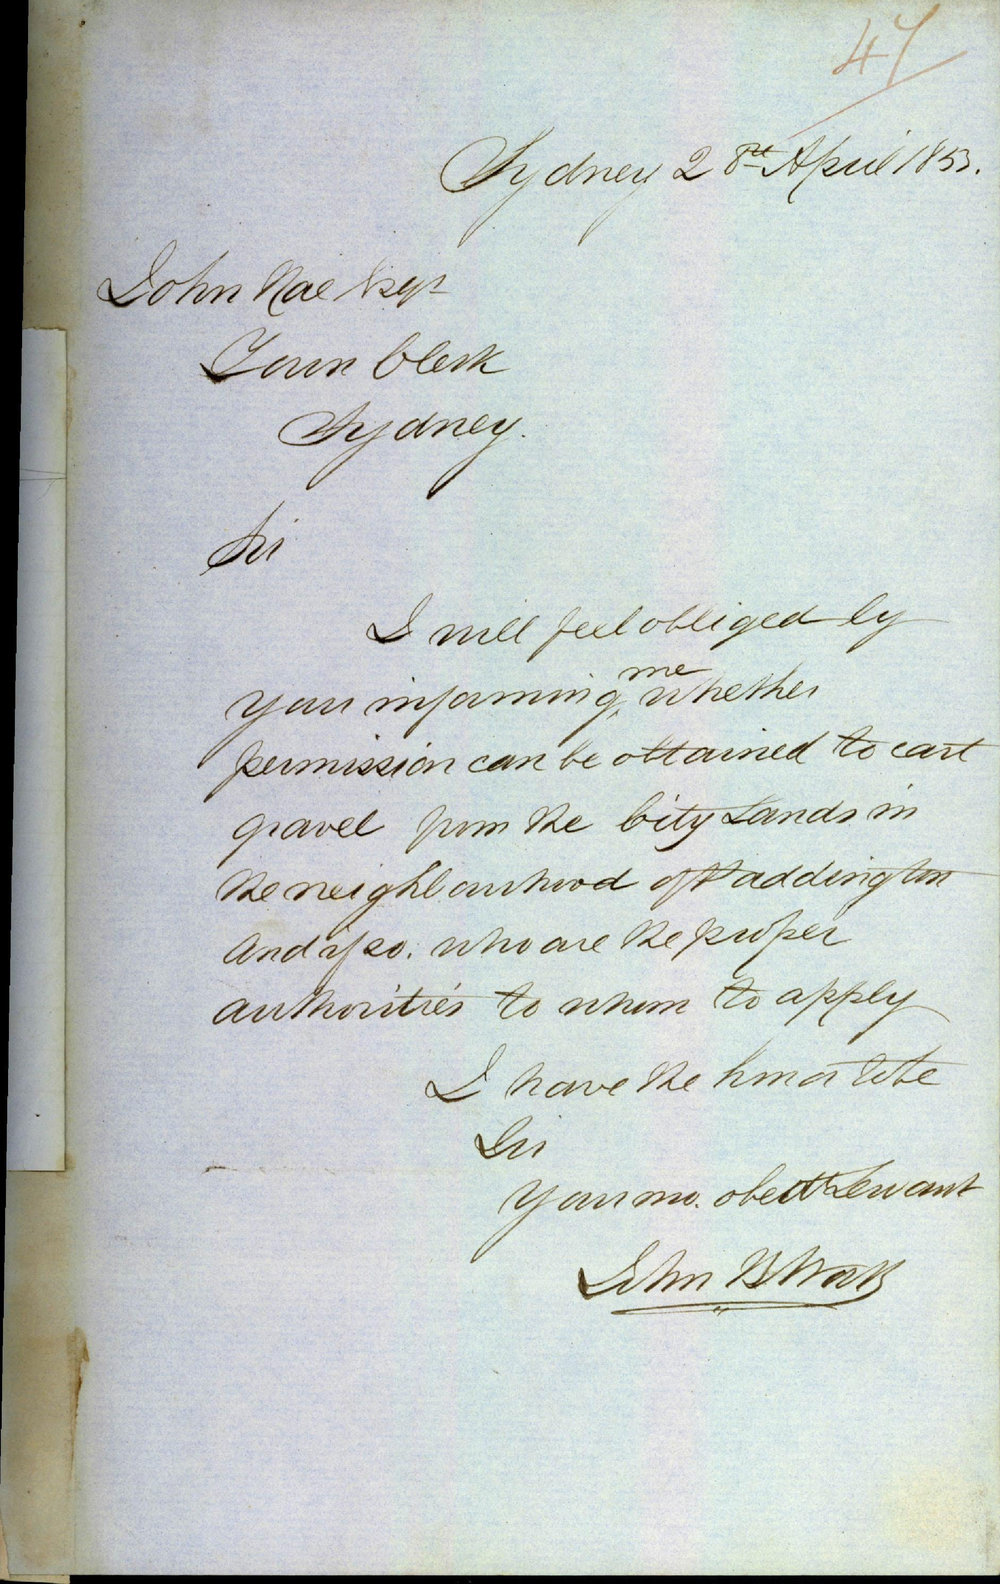 47
Sydney 28th April 1853.
John Rae Esqr
Town Clerk
Sydney.
Sir
I will feel obliged by
your informing me whether
permission can be obtained to cart
gravel from the City Lands in
the neighbourhood of Paddington
And if so. who are the proper
authorities to whom to apply
I have the honor to be
Sir
Your mo. obedt Servant
John B Watt